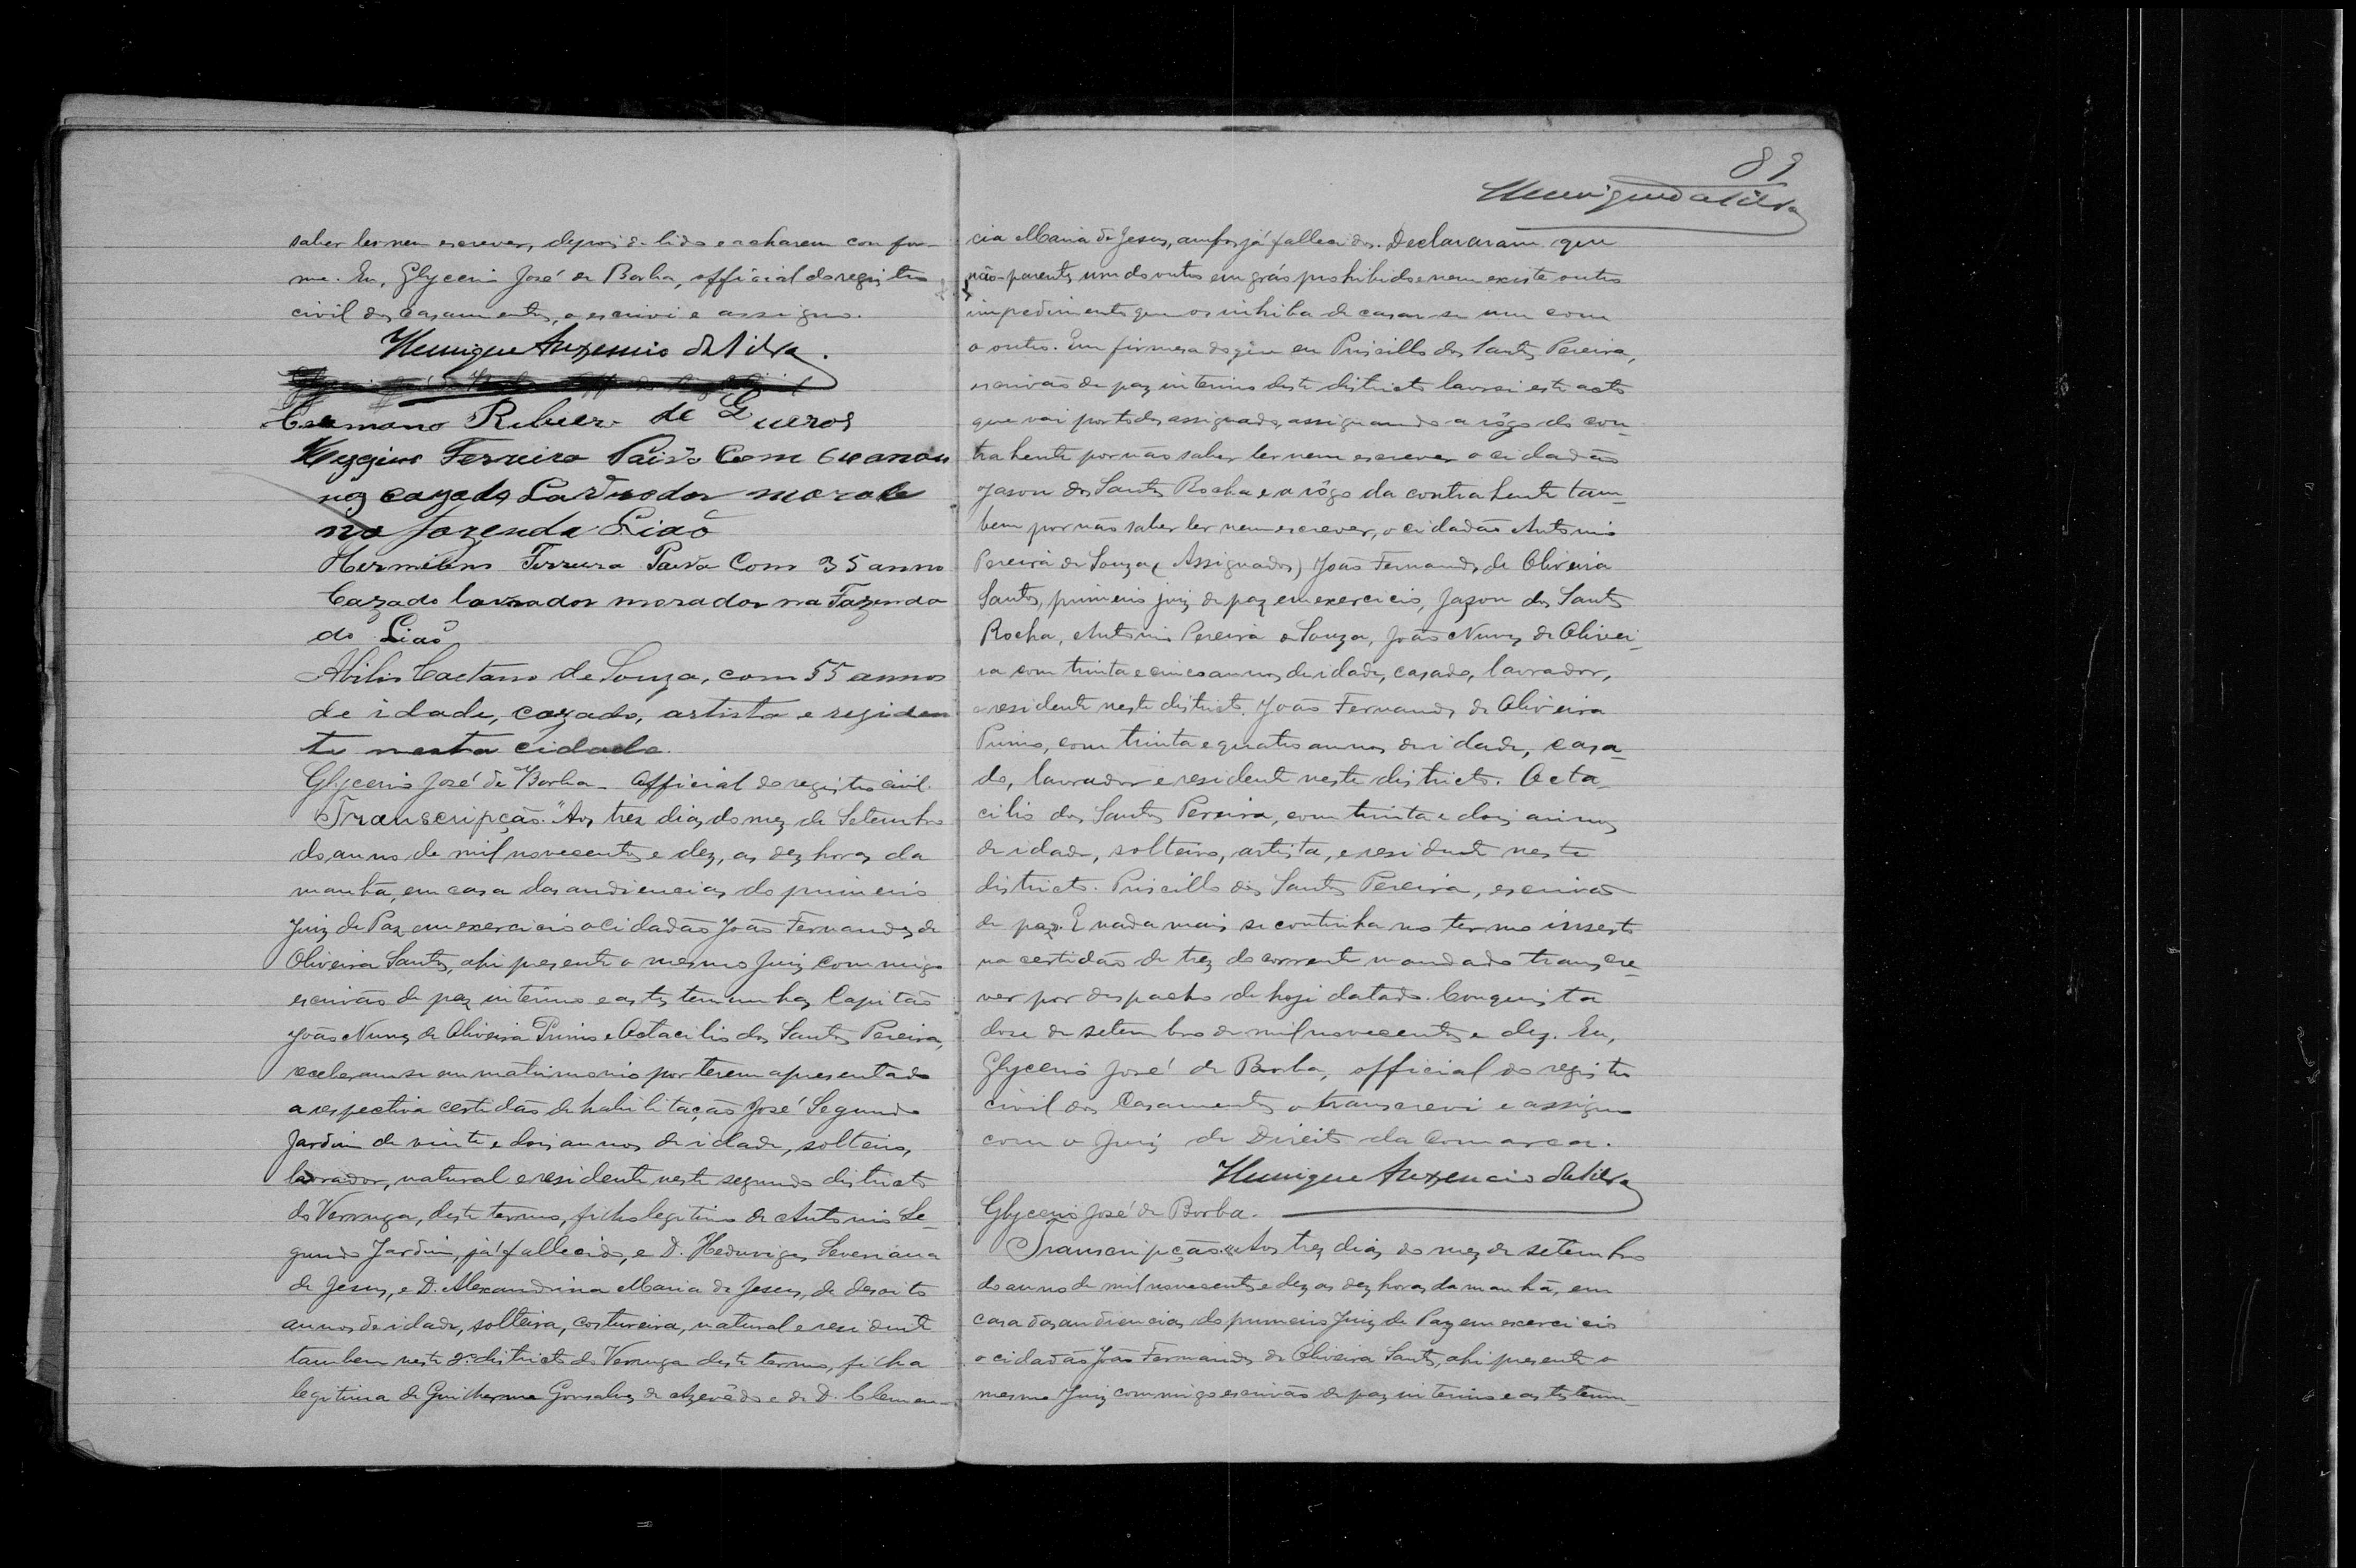 saber ler nem escrever, depois de lido e acharem confor-
me. Eu, Glycerio José de Borba, official do registro
civil dos casamentos, o escrevi e assigno.
Henrique Auxencio da Silva.
Ribeiro de
Hyggino Ferreira Paiva Com
cazado Lavrador morador
na fazenda Lião
Ferreira Paiva Com 35 anno
Cazado lavrador morador na Fazenda
do Lião
Abilio Caetano de Souza, com 55 annos
de idade, cazado, artista e residen
te nesta cidade.
Glycerio José de Borba - Official do registro civil.
Transcripção. "Aos trez dias do mez de Setembro
do anno de mil novecentos e dez, as dez horas da
manhã, em casa das audiencias do primeiro
Juiz de Paz em exercicio o cidadão João Fernandes de
Oliveira Santos, ahi presente o mesmo Juiz commigo
escrivão de paz interino e as testemunhas Capitão
João Nunes de Oliveira Primo e Octacilio dos Santos Pereira,
receberam-se em matrimonio por terem apresentado
a respectiva certidão de habilitação José Segundo
Jardim de vinte e dois annos de idade, solteiro,
lavrador, natural e residente neste segundo districto
do Verruga, deste termo, filho legitimo de Antonio Se-
gundo Jardim, já fallecido, e D. Heduviges Severiana
de Jesus, e D. Alexandrina Maria de Jesus, de desoito
annos de idade, solteira, costureira, natural e residente
tambem neste 2º districto do Verruga deste termo, filha
legitima de Guilherme Gonsalves de Azevêdo e de D. Clemen-
89
Henrique da Silva
cia Maria de Jesus, ambos já fallecidos. Declararam que
não parentes um do outro em gráo prohibido e nem existe outro
impedimento que os inhiba de casar-se um com
o outro. Em firmeza do que eu Priscillo dos Santos Pereira,
escrivão de paz interino deste districto lavrei este acto
que vai por todos assignado, assignando a rôgo do con-
trahente por não saber ler nem escrever o cidadão
Jason dos Santos Rocha e a rôgo da contrahente tam-
bem por não saber ler nem escrever, o cidadão Antonio
Pereira de Souza (Assignados) João Fernandes de Oliveira
Santos, primeiro juiz de paz em exercicio, Jazon dos Santos
Rocha, Antonio Pereira de Souza, João Nunes de Olivei-
ra com trinta e cinco annos de idade, casado, lavrador,
e residente neste districto. João Fernandes de Oliveira
Primo, com trinta e quatro annos de idade, casa-
do, lavrador e residente neste districto. Octa-
cilio dos Santos Pereira, com trinta e dois annos
de idade, solteiro, artista, e residente neste
districto. Priscillo dos Santos Pereira, escrivão
de paz. E nada mais se continha no termo inserto
na certidão de trez do corrente mandado transcre-
ver por despacho de hoje datado. Conquista
doze de setembro de mil novecentos e dez. Eu,
Glycerio José de Borba, official do registro
civil dos Casamentos o transcrevi e assigno
com o Juiz de Direito da Comarca.
Henrique Auxencio da Silva
Glycerio José de Borba.
Transcripção. "Aos trez dias do mez de setembro
do anno de mil novecentos e dez as dez horas da manhã, em
casa das audiencias do primeiro Juiz de Paz em exercicio
o cidadão João Fernandes de Oliveira Santos, ahi presente o
mesmo Juiz commigo escrivão de paz interino e as testemu-